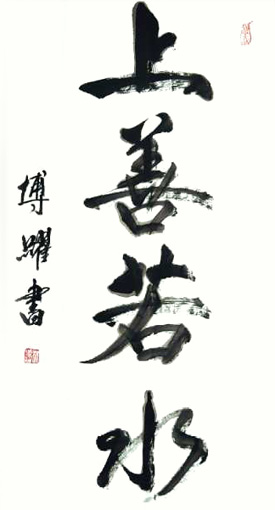 上善若水
博躍書